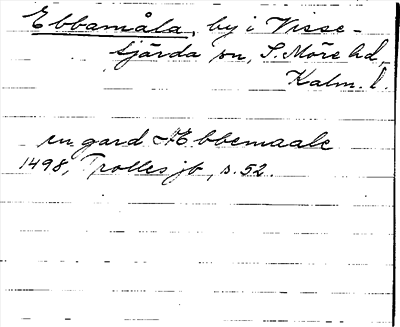 Ebbamåla, by i Visse-
fjärda sn, S. Möre hd,
Kalm. l.
en gard Æbbemaale
1498, Trolles jb, s. 52.